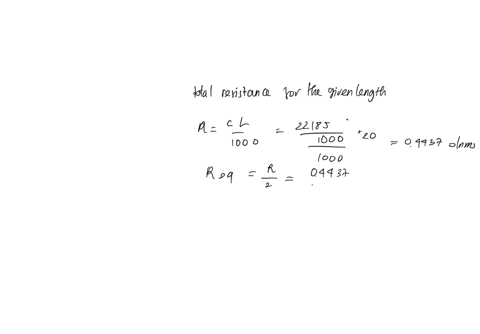 total resistance for the given length
R = cL/1000 = 22185/1000/1000 * 20 = 0.4437 ohms
Req = R/2 = 0.4437